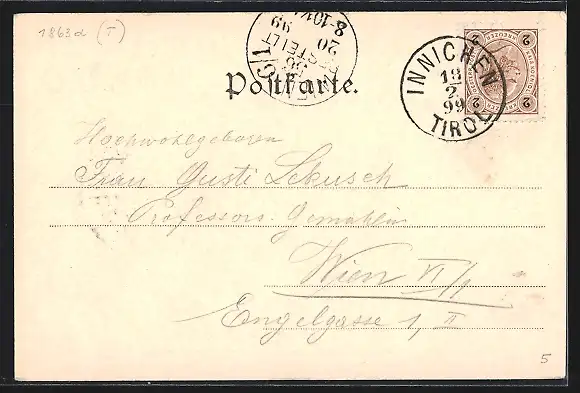 1863d (T)
8-10V
20 99
BESTELLT
Postkarte.
INNICHEN
18
2
99
TIROL
2 KREUZER 2
2 2
Hochwohlgeboren
Frau Gusti Lekusch
Professors-Gemahlin
Wien VI/1
Engelgasse 1, II
5